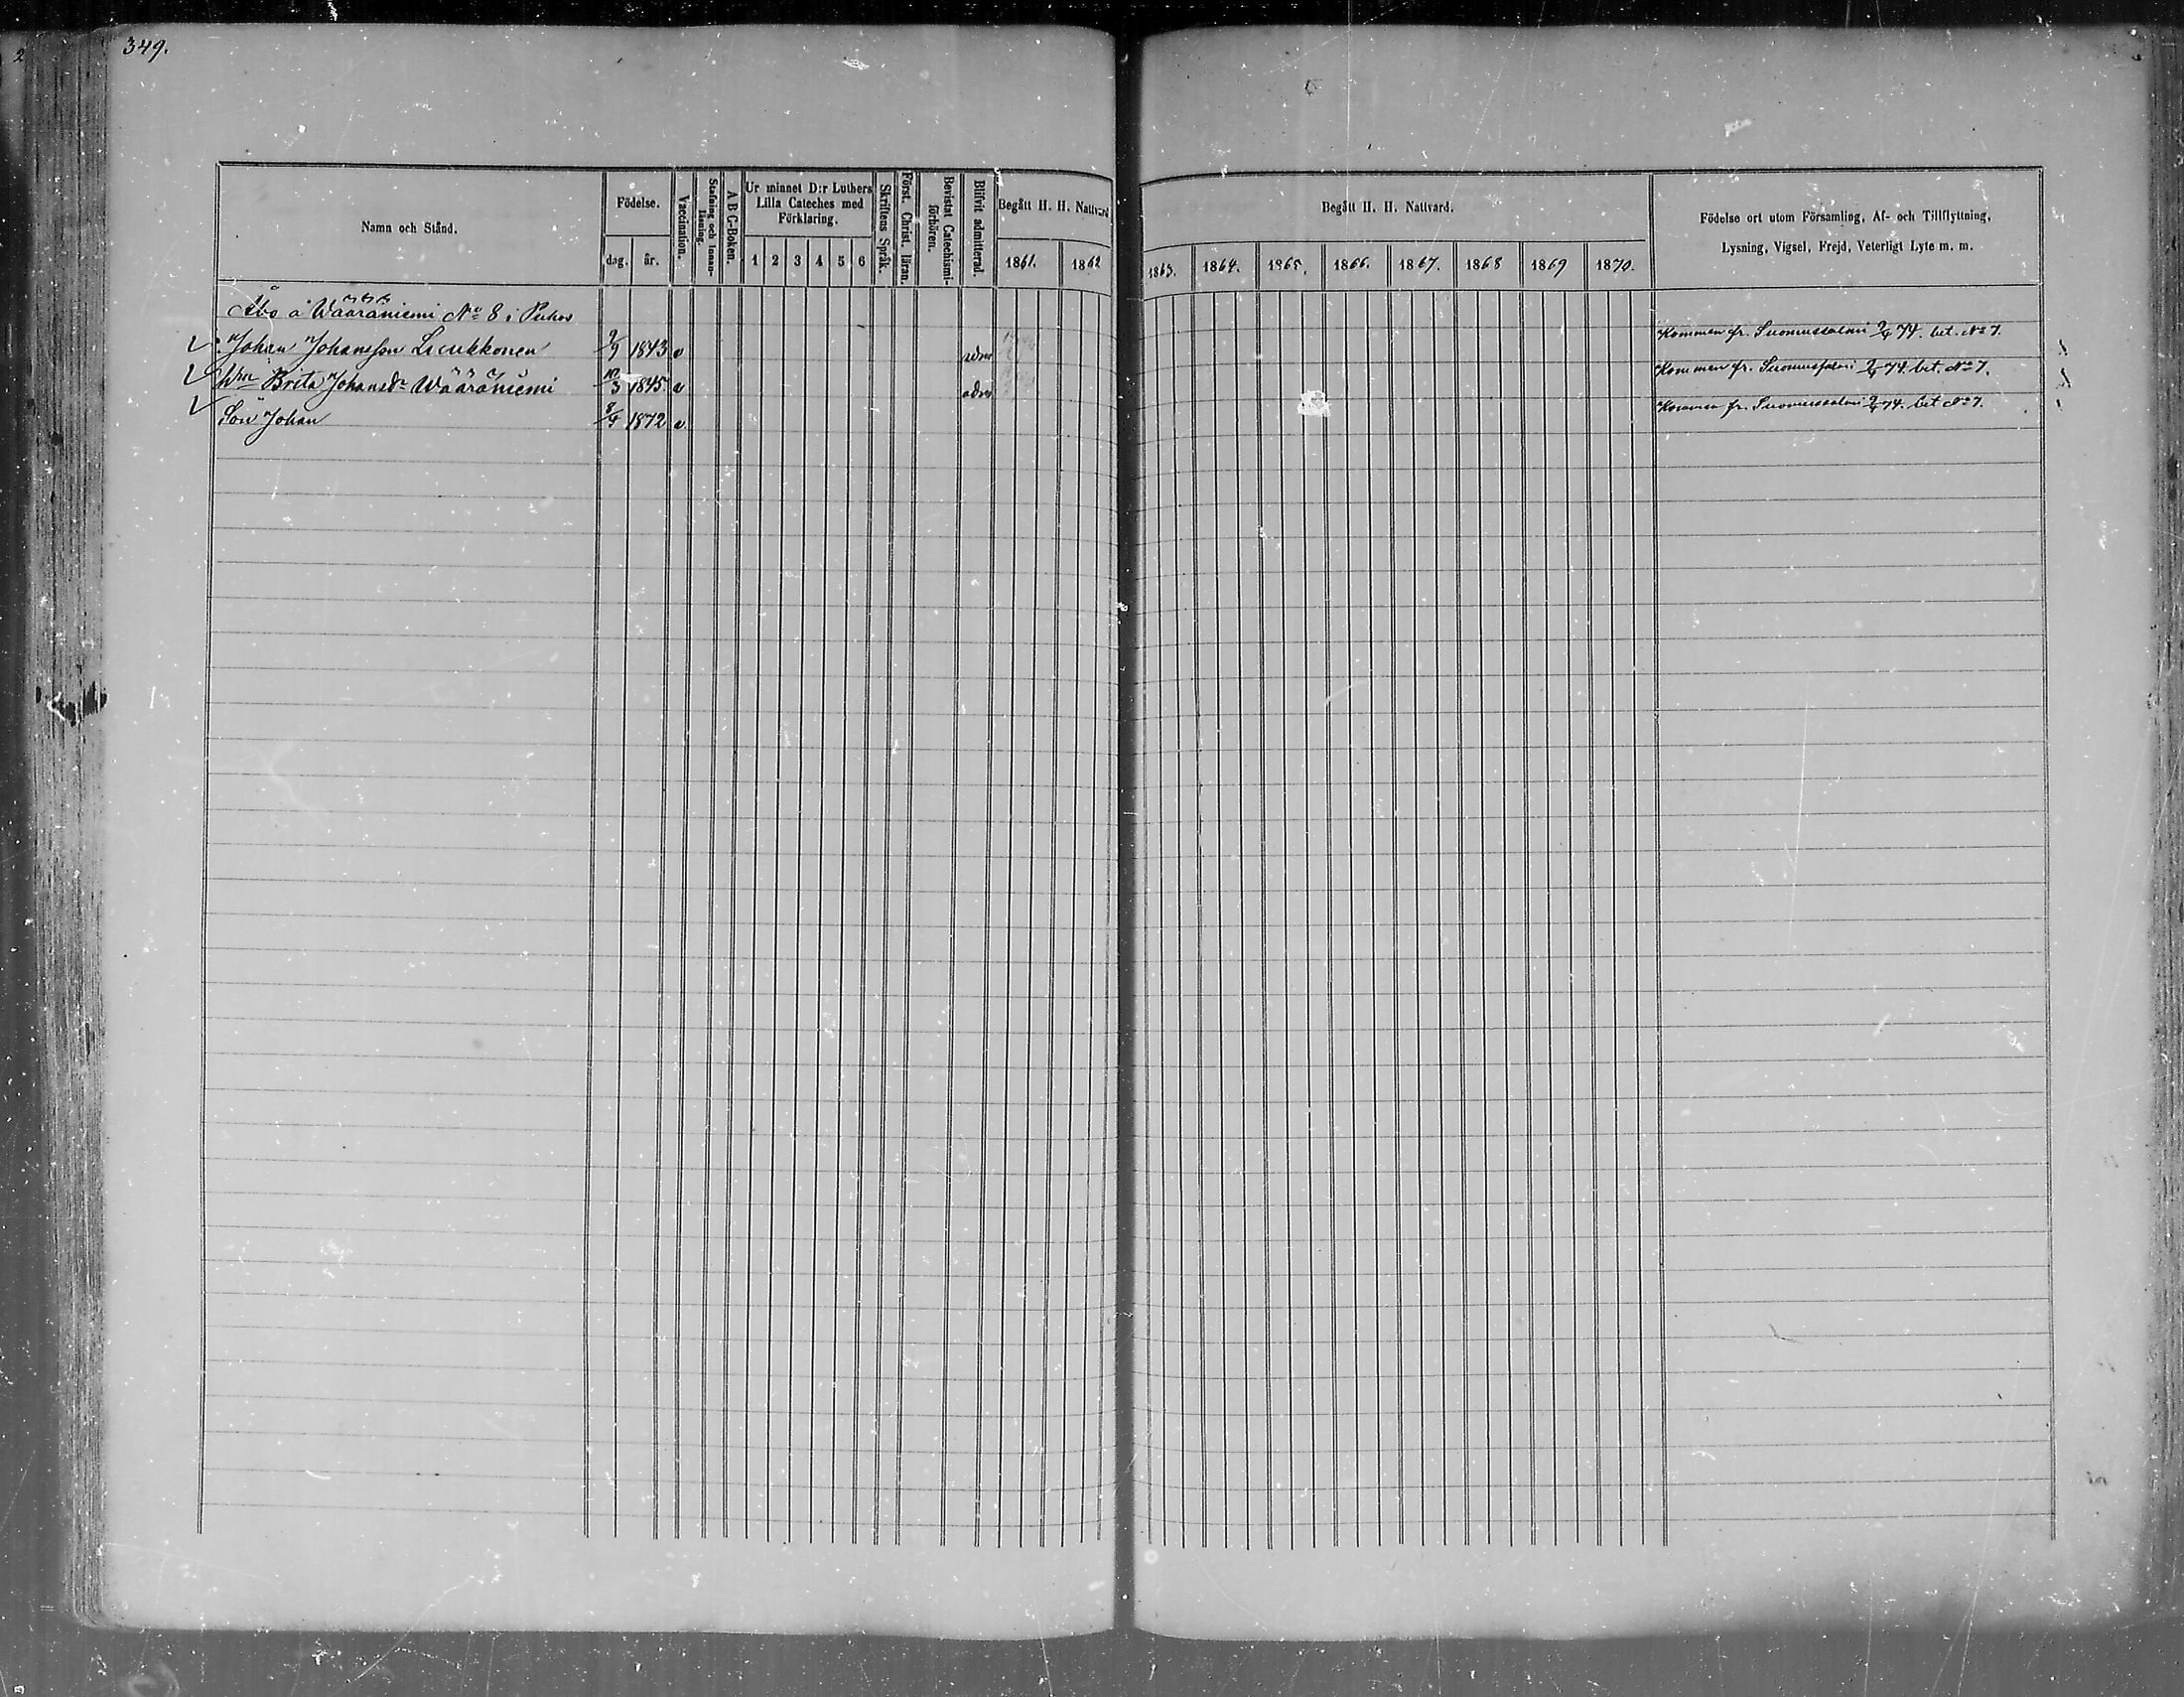 349.
Namn och Stånd.
Födelse.
dag.
år.
Vaccination.
Stafning och Innanläsning.
A B C-Boken.
Ur minnet D:r Luthers
Lilla Cateches med
Förklaring.
1 2 3 4 5 6
Skriftens Språk.
Först. Christ. läran.
Bevistat Catechismi-
förhören.
Blifvit admitterad.
Begått H. H. Nattvard
1861. 1862
Begått H. H. Nattvard.
1863. 1864. 1865. 1866. 1867. 1868 1869 1870.
Födelse ort utom Församling, Af- och Tillflyttning,
Lysning, Vigsel, Frejd, Veterligt Lyte m. m.
Åbo å Wääräniemi No 8 i Puhos
Johan Johansson Leukkonen 9/9 1843 v adm Kommen fr. Suomussalmi 2/4 74. bet. No 7.
Hrn Brita Johansdr Wääräniemi 10/3 1845 v adm Kommen fr. Suomussalmi 2/4 74. bet. No 7.
Son Johan 8/4 1872 v. Kommen fr. Suomussalmi 2/4 74. bet No 7.